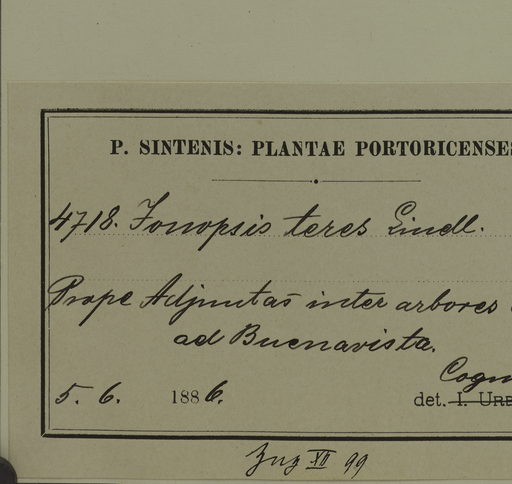 P. SINTENIS: PLANTAE PORTORICENSES
4718. Jonopsis teres Lindl.
Prope Adjuntas inter arbores
ad Buenavista.
Cogn
5. 6. 1886. det. I. URB
XII 99